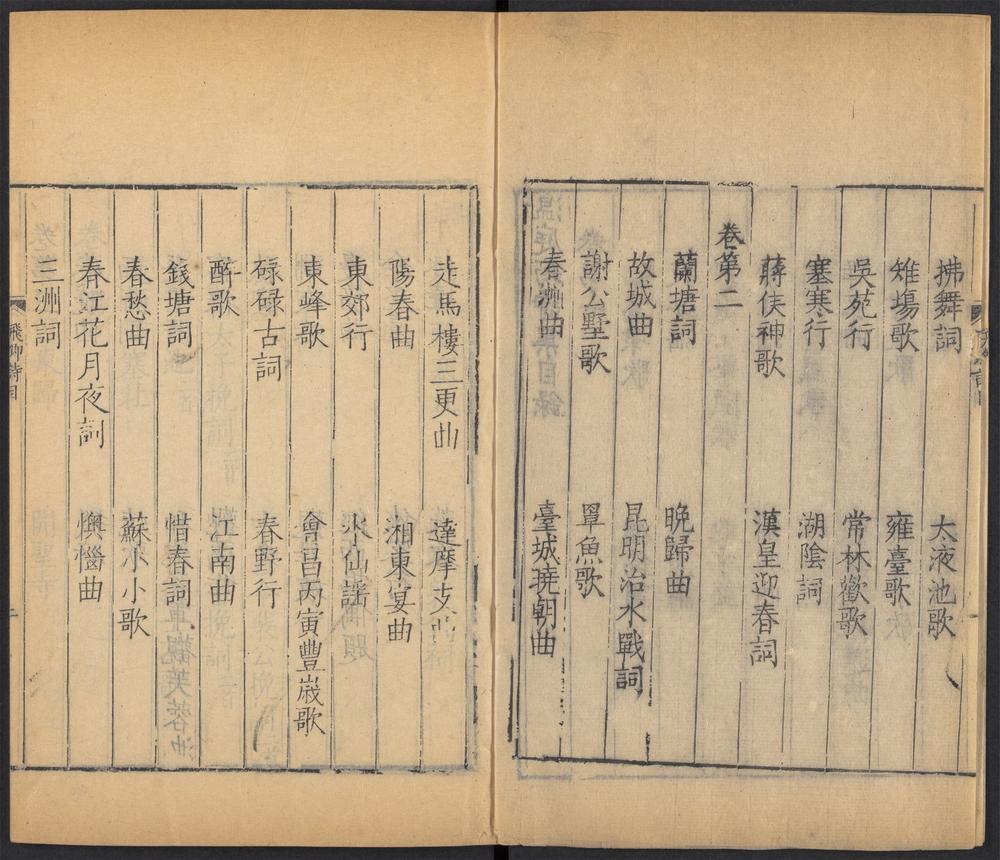 拂舞詞 太液池歌
雉塲歌 雍臺歌
吳苑行 常林歡歌
塞寒行 湖陰詞
蔣侯神歌 漢皇迎春詞
卷第二
蘭塘詞 晚歸曲
故城曲 昆明治水戰詞
謝公墅歌 罩魚歌
春洲曲 臺城曉朝曲
走馬樓三更曲 達摩支曲
陽春曲 湘東宴曲
東郊行 水仙謠
東峰歌 會昌丙寅豐歲歌
碌碌古詞 春野行
醉歌 江南曲
錢塘詞 惜春詞
春愁曲 蘇小小歌
春江花月夜詞 懊惱曲
三洲詞
飛卿詩目 二